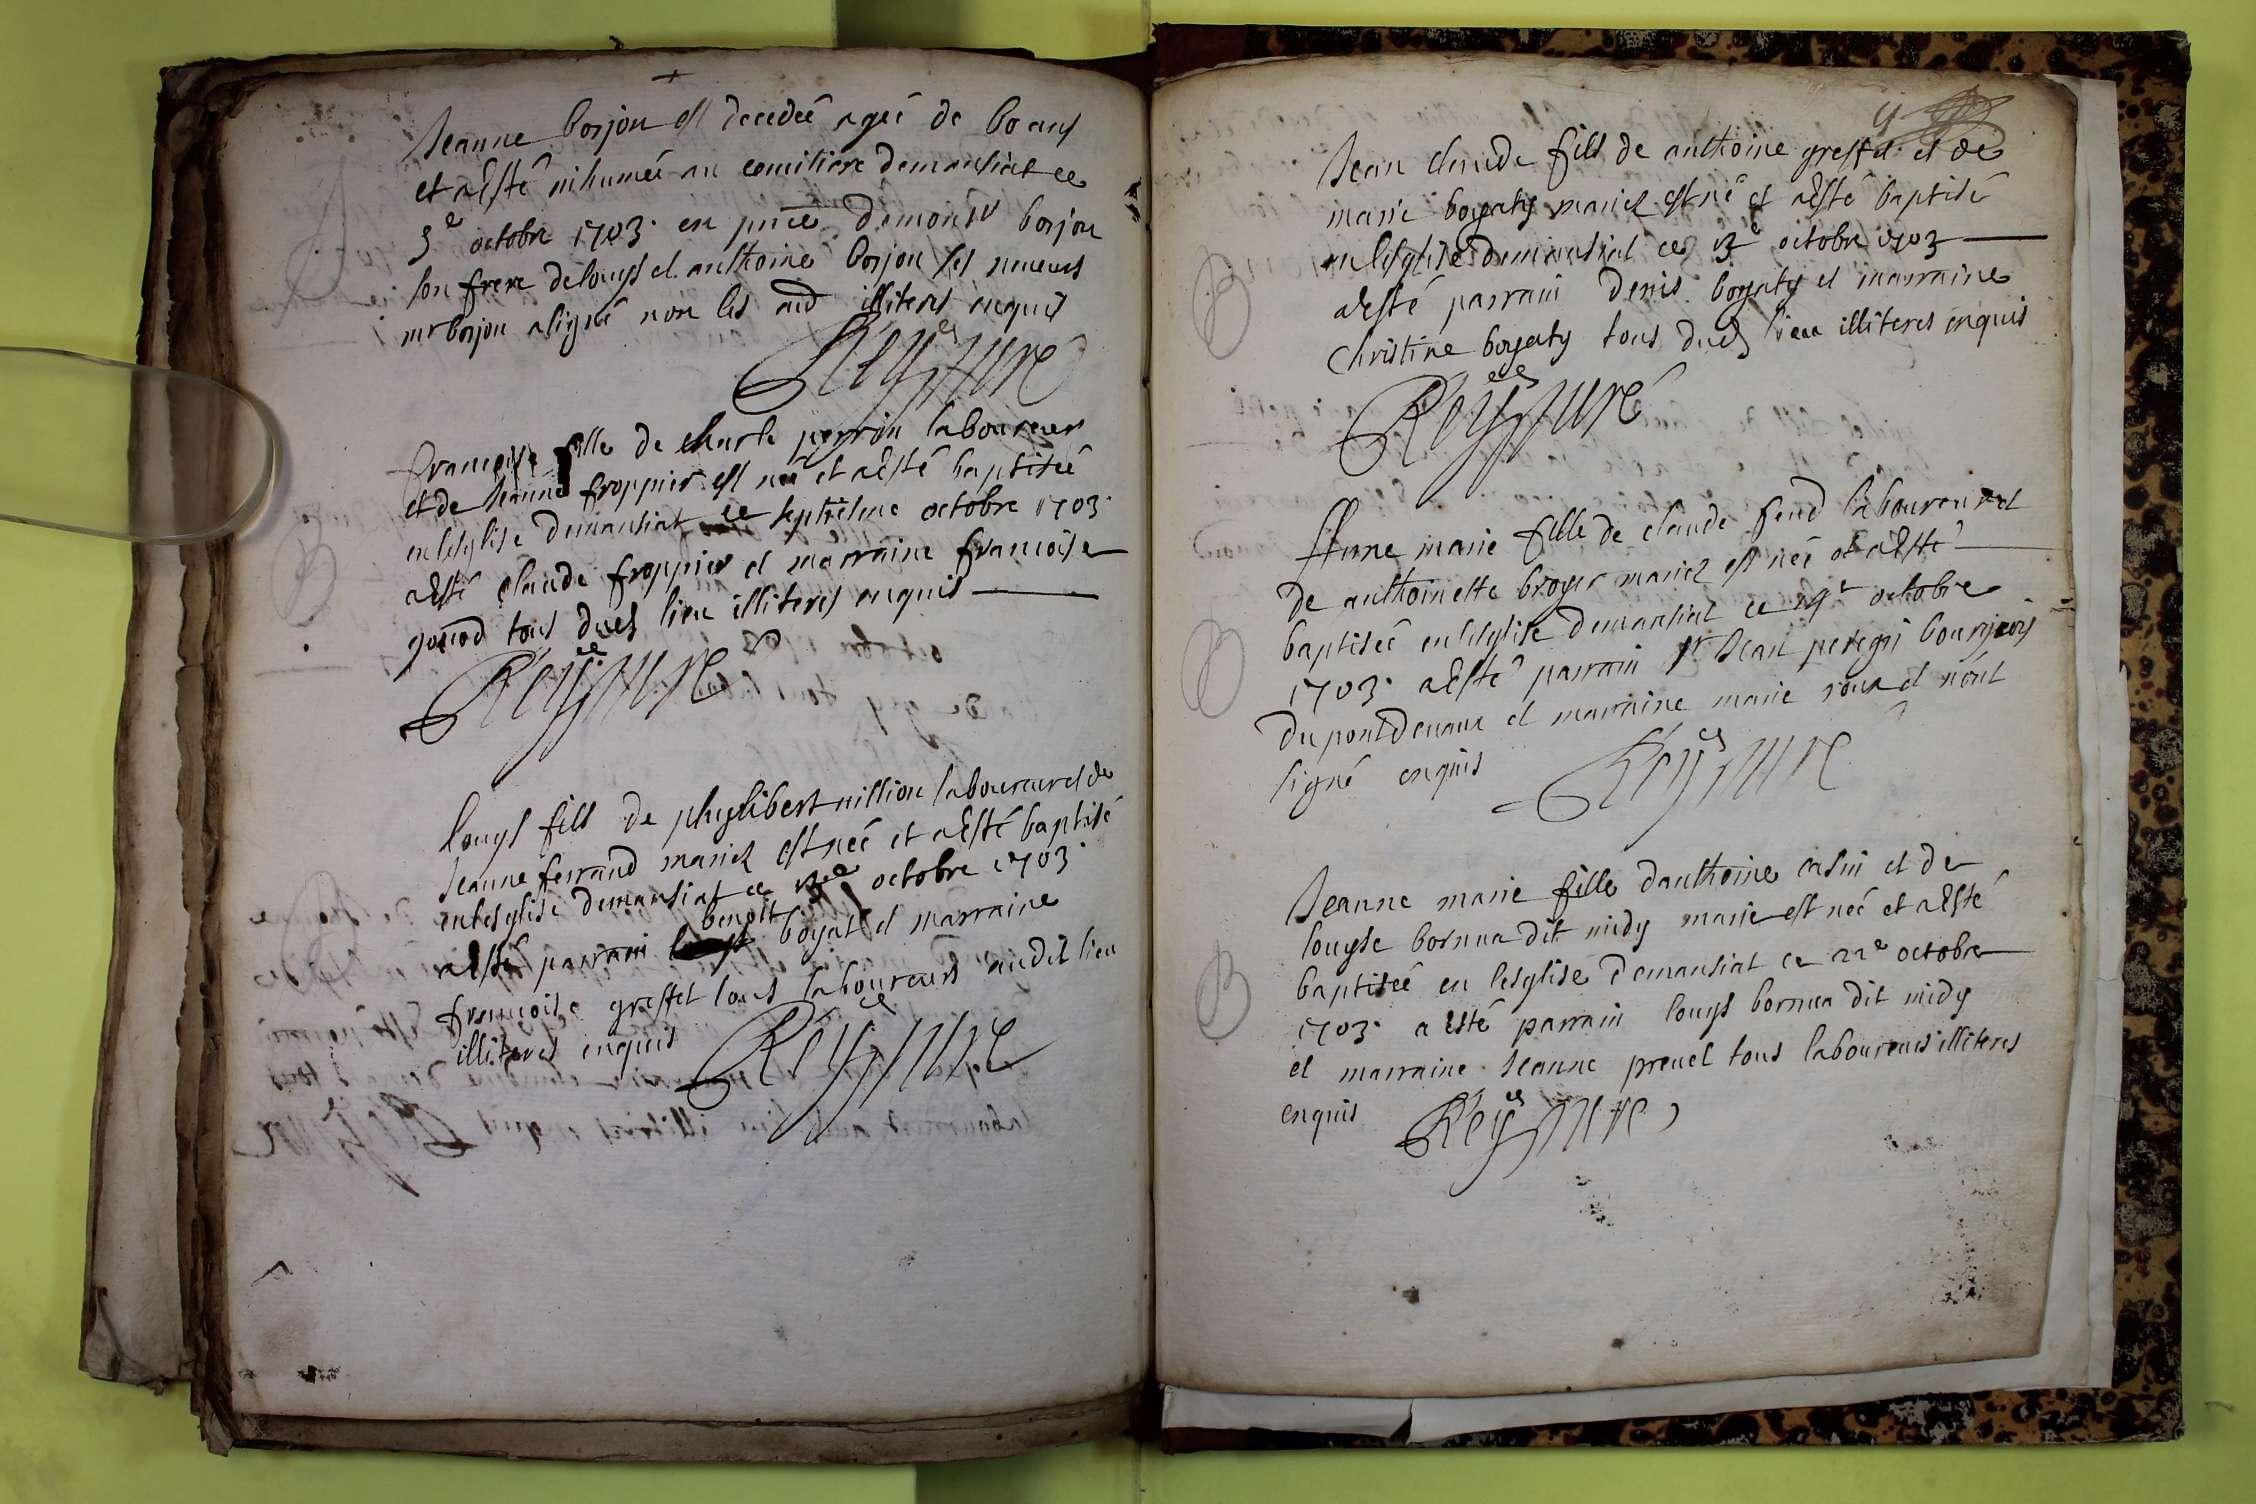 Jeanne borjon est decedeé ageé de 60 ans
et aesté inhumeé au cemitiere demantiat ce
5e octobre 1703. en pnce demonsr borjon
son frere delouys et anthoine borjon ses neueus
mr borjon asigné non les aud illiteres enquis
Reyssure
francoise fille de charle perrin laboureur
et de Jeanne froppier est neé et aesté baptiseé
enlesglise demantiat ce septiesme octobre 1703.
aesté claude froppier et marraine francoise
gonod tous duds lieu illiteres enquis
Reyssure
louys fils de phylibert million laboureur et de
Jeanne ferrand mariez est neé et aesté baptisé
enlesglise demantiat ce 13e octobre 1703.
aesté parrain benoit boyat et marraine
francoise greffet tous laboureurs audit lieu
illiteres enquis
Reyssure
Jean claude fils de anthoine greffet et de
marie boyaty mariez est né et aesté baptisé
enlesglise demantiat ce 13e octobre 1703
aesté parrain denis boyaty et marraine
christine boyaty tous duds lieu illiteres enquis
Reyssure
Anne marie fille de claude feud laboureur et
de anthoinette broyer mariez est neé et aesté
baptiseé enlesglise demantiat ce 19e octobre
1703. aesté parrain sr Jean peregri bourgeois
du pontdevaux et marraine marie roux et n'ont
signé enquis
Reyssure
Jeanne marie fille danthoine casin et de
louyse bornua dit midy marie est neé et aesté
baptiseé en lesglise demantiat ce 22e octobre
1703. a esté parrain louys bornua dit midy
et marraine Jeanne preuel tous laboureurs illiteres
enquis
Reyssure